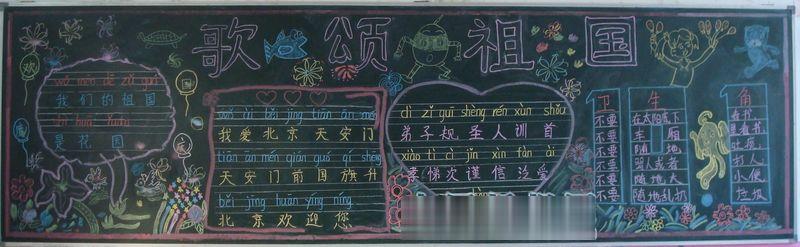 歌颂祖国
欢
wǒ men de zǔ guó
我们的祖国
是花园
wǒ ài běi jīng tiān ān mén
我爱北京天安门
tiān ān mén qián guó qí shēng
天安门前国旗升
běi jīng huān yíng nín
北京欢迎您
dì zǐ guī shèng rén xùn shǒu
弟子规圣人训首
xiào tì cì jǐn xìn fàn ài
孝悌次谨信泛爱
卫生角
不要在太阳底下看书
不要车厢里看书
不要随地吐痰
不要骂人或者打人
不要随地大小便
不要随地乱扔垃圾